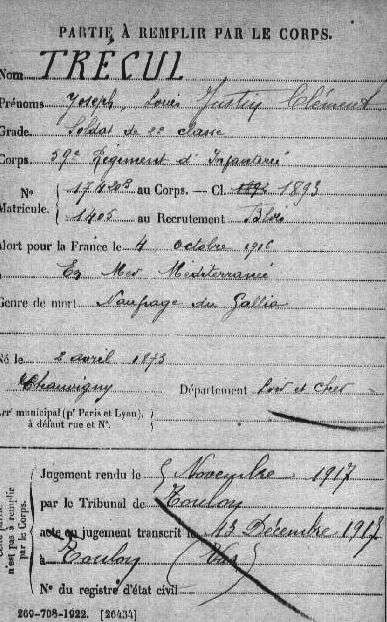 PARTIE À REMPLIR PAR LE CORPS.
Nom TRÉCUL
Prénoms Joseph Louis Justin Clément
Grade Soldat de 2e classe
Corps 59e Régiment d'Infanterie
N° 17420B au Corps. — Cl. 1893 1893
Matricule. 1405 au Recrutement Blois
Mort pour la France le 4 octobre 1916
à En Mer Méditerranée
Genre de mort Naufrage du Gallia
Né le 2 avril 1873
Chauvigny Département Loir et Cher
Arr' municipal (p' Paris et Lyon),
à défaut rue et N°.
n'est pas à remplir
par le Corps.
Jugement rendu le Novembre 1917
par le Tribunal de Toulon
acte ou jugement transcrit le 13 Décembre 1917
à Toulon (Var)
N° du registre d'état civil
269-708-1922. [26434]